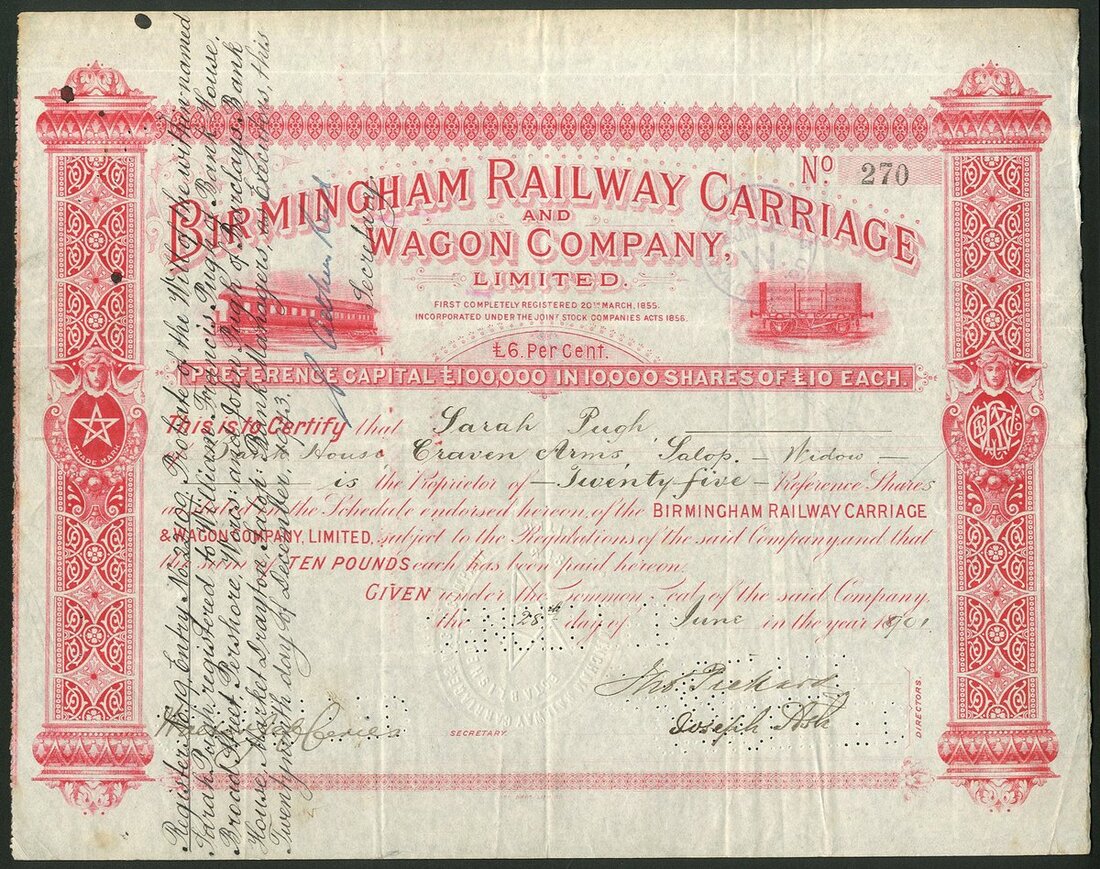 No 270
BIRMINGHAM RAILWAY CARRIAGE
AND
WAGON COMPANY,
LIMITED.
FIRST COMPLETELY REGISTERED 20TH MARCH, 1855.
INCORPORATED UNDER THE JOINT STOCK COMPANIES ACTS 1856.
£6. PER CENT.
PREFERENCE CAPITAL £100,000 IN 10000 SHARES OF £10 EACH.
This is to Certify that Sarah Pugh,
House Craven Arms, Salop. - Widow -
is the Proprietor of - Twenty five - Preference Shares
the Schedule endorsed hereon, of the BIRMINGHAM RAILWAY CARRIAGE
& WAGON COMPANY, LIMITED, subject to the Regulations of the said Company, and that
the sum of TEN POUNDS each has been paid hereon.
GIVEN under the Common Seal of the said Company,
the 28th day of June in the year 1901.
Joseph Ash
DIRECTORS.
SECRETARY.
TRADE MARK
Register No. 19, Entry No. 2409. Probate of the Will of the within named
Sarah Pugh registered to William Francis Pugh of Bank House,
Broad Street, Pershore, Worcs: and John Pugh of Barclays Bank
House, Market Drayton, Salop: Bank Managers, as Executors, this
Twentyninth day of December, 1943.
Secretary